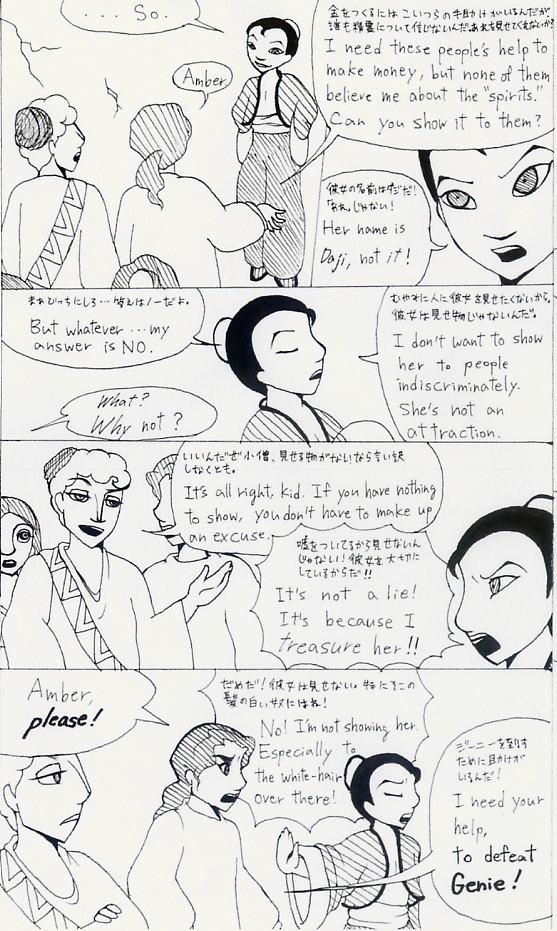 ... So.
Amber.
金をつくるには こいつらの手助けがいるんだが、
誰も精霊について信じないんだ。あれを見せてくれないか?
I need these people's help to
make money, but none of them
believe me about the "spirits."
Can you show it to them?
彼女の名前はダジだ!
「あれ」じゃない!
Her name is
Daji, not it!
まあどっちにしろ…答えはノーだよ。
But whatever ... my
answer is NO.
むやみに人に彼女を見せたくないから。
彼女は見せ物じゃないんだ。
I don't want to show
her to people
indiscriminately.
She's not an
attraction.
What?
Why not?
いいんだぜ小僧、見せる物がないなら言い訳
しなくとも。
It's all right, kid. If you have nothing
to show, you don't have to make up
an excuse.
嘘をついてるから見せないん
じゃない!彼女を大切に
しているからだ!!
It's not a lie!
It's because I
treasure her!!
Amber,
please!
だめだ!彼女は見せない。特にそこの
髪の白い奴にはね!
No! I'm not showing her.
Especially to
the white-hair
over there!
ジーニーを倒す
ために助けが
いるんだ!
I need your
help,
to defeat
Genie!